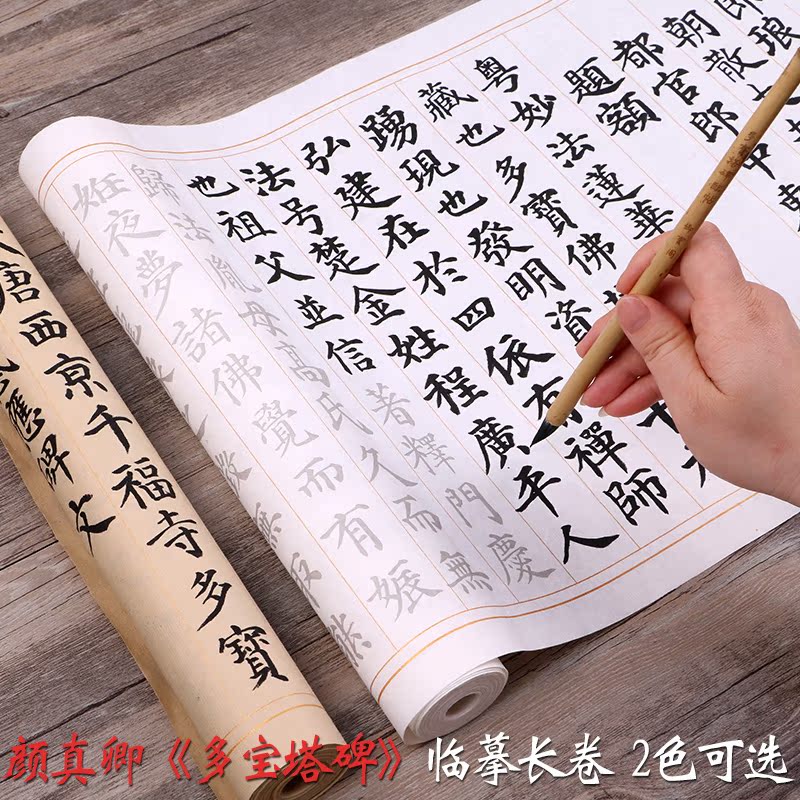 郎琅
朝散大
都官郎中東
題額
粤妙法蓮華
藏也多寶佛
踴現也發明資
弘建在於四依有禪師
法号楚金姓程廣平人
也祖父並信著釋門慶
歸法胤母高氏久而無
姙夜夢諸佛覺而有娠
唐西京千福寺多寶
應碑文
颜真卿《多宝塔碑》临摹长卷 2色可选